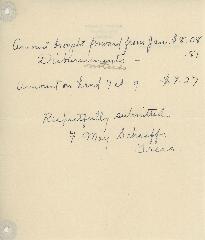 Amount brought forward from Jan. $8.08
Disbursements - .81
notices
Amount on hand Feb 9 $7.27
Respectfully submitted
F. May Schaeffer
Treas.